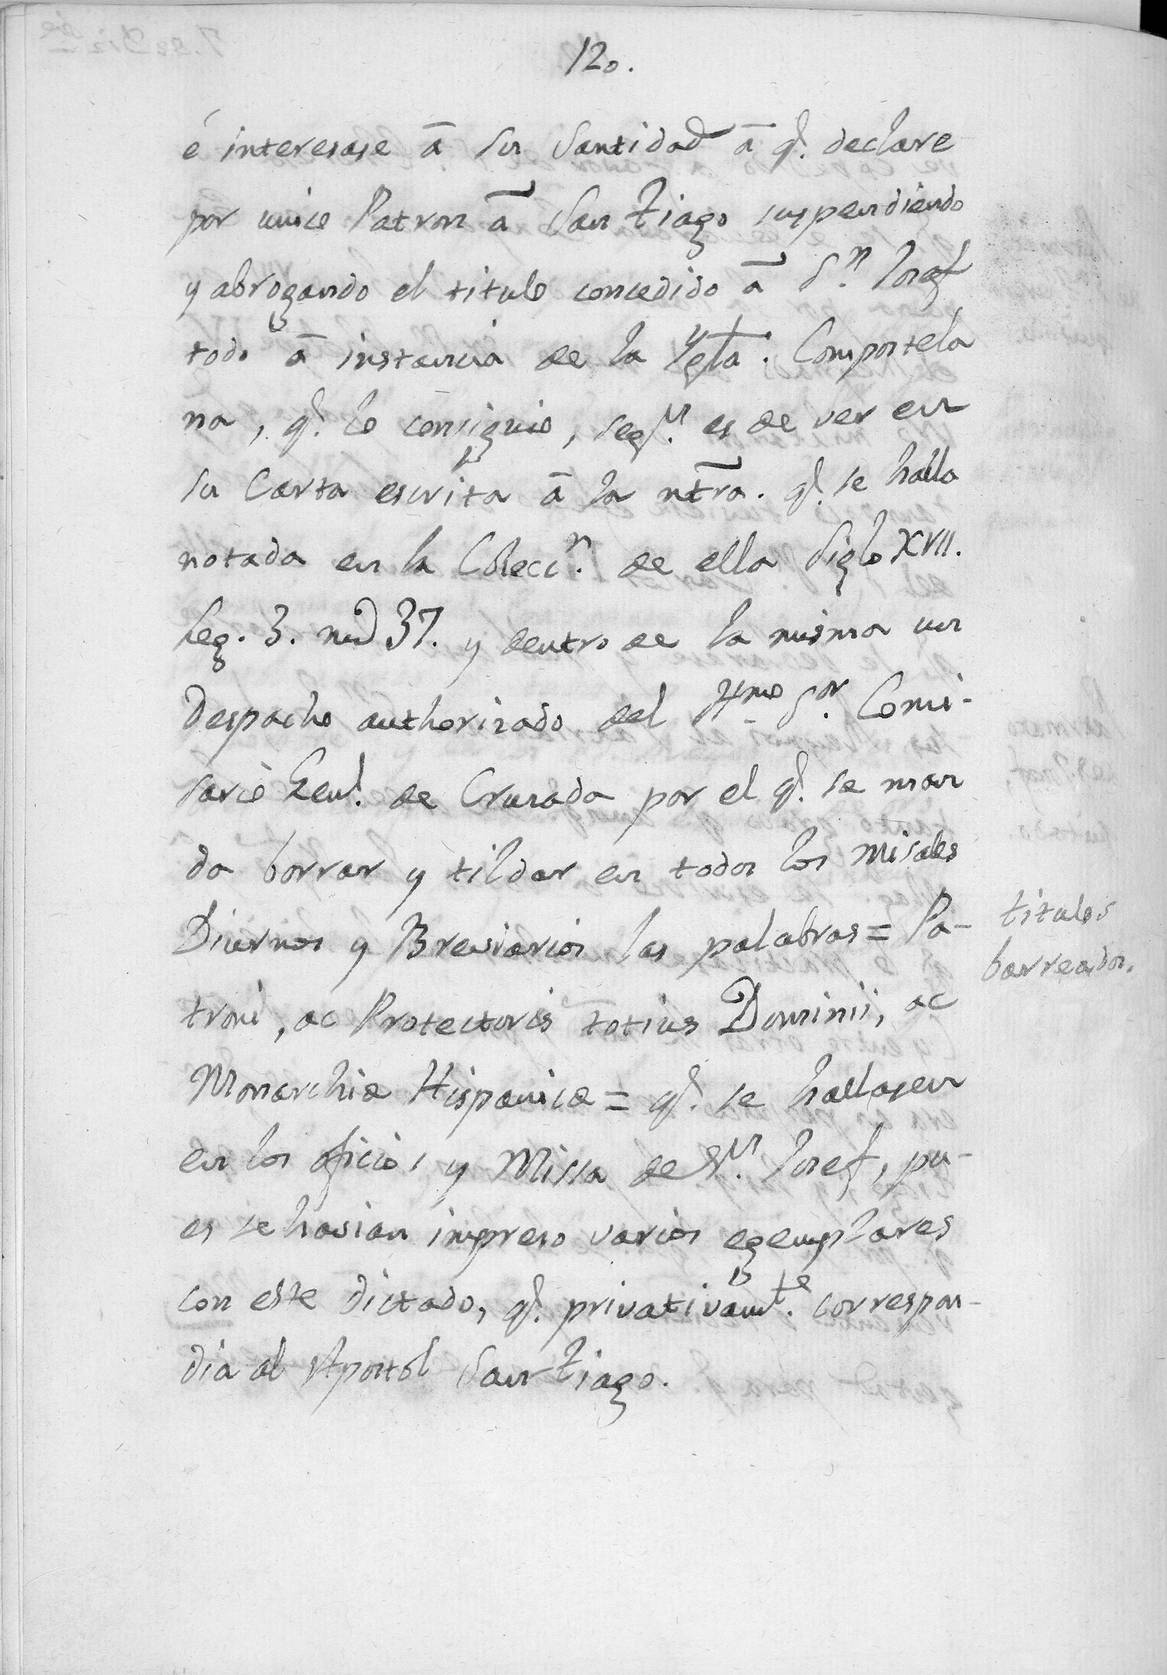 120.
é interesase â su Santidad â q.ᵉ declare
por unico Patron â San Tiago suspendiendo
y abrogando el titulo concedido â S.ⁿ Josef
todo â instancia de la Ygla. Compostela
na, q.ᵉ lo consiguio, seg.ⁿ es de ver en
su Carta escrita â la ntra. q.ᵉ se halla
notada en la Colecc.ⁿ de ella Siglo XVII.
Leg. 3. num 37. y dentro de la misma un
Despacho authorizado del Yltmo S.ᵒʳ Comi-
sario Genl. de Cruzada por el q.ᵉ se man
da borrar y tildar en todos los Misales
Diurnos y Breviarios las palabras = Pa-
troni, ac Protectoris totius Dominii, ac
Monarchiæ Hispanicæ = q.ᵉ se hallasen
en los oficios y Missa de S.ⁿ Josef, pu-
es se havian impreso varios egemplares
con este dictado, q.ᵉ privativam.ᵗᵉ correspon-
dia al Apostol San Tiago.
titulos
barreados.